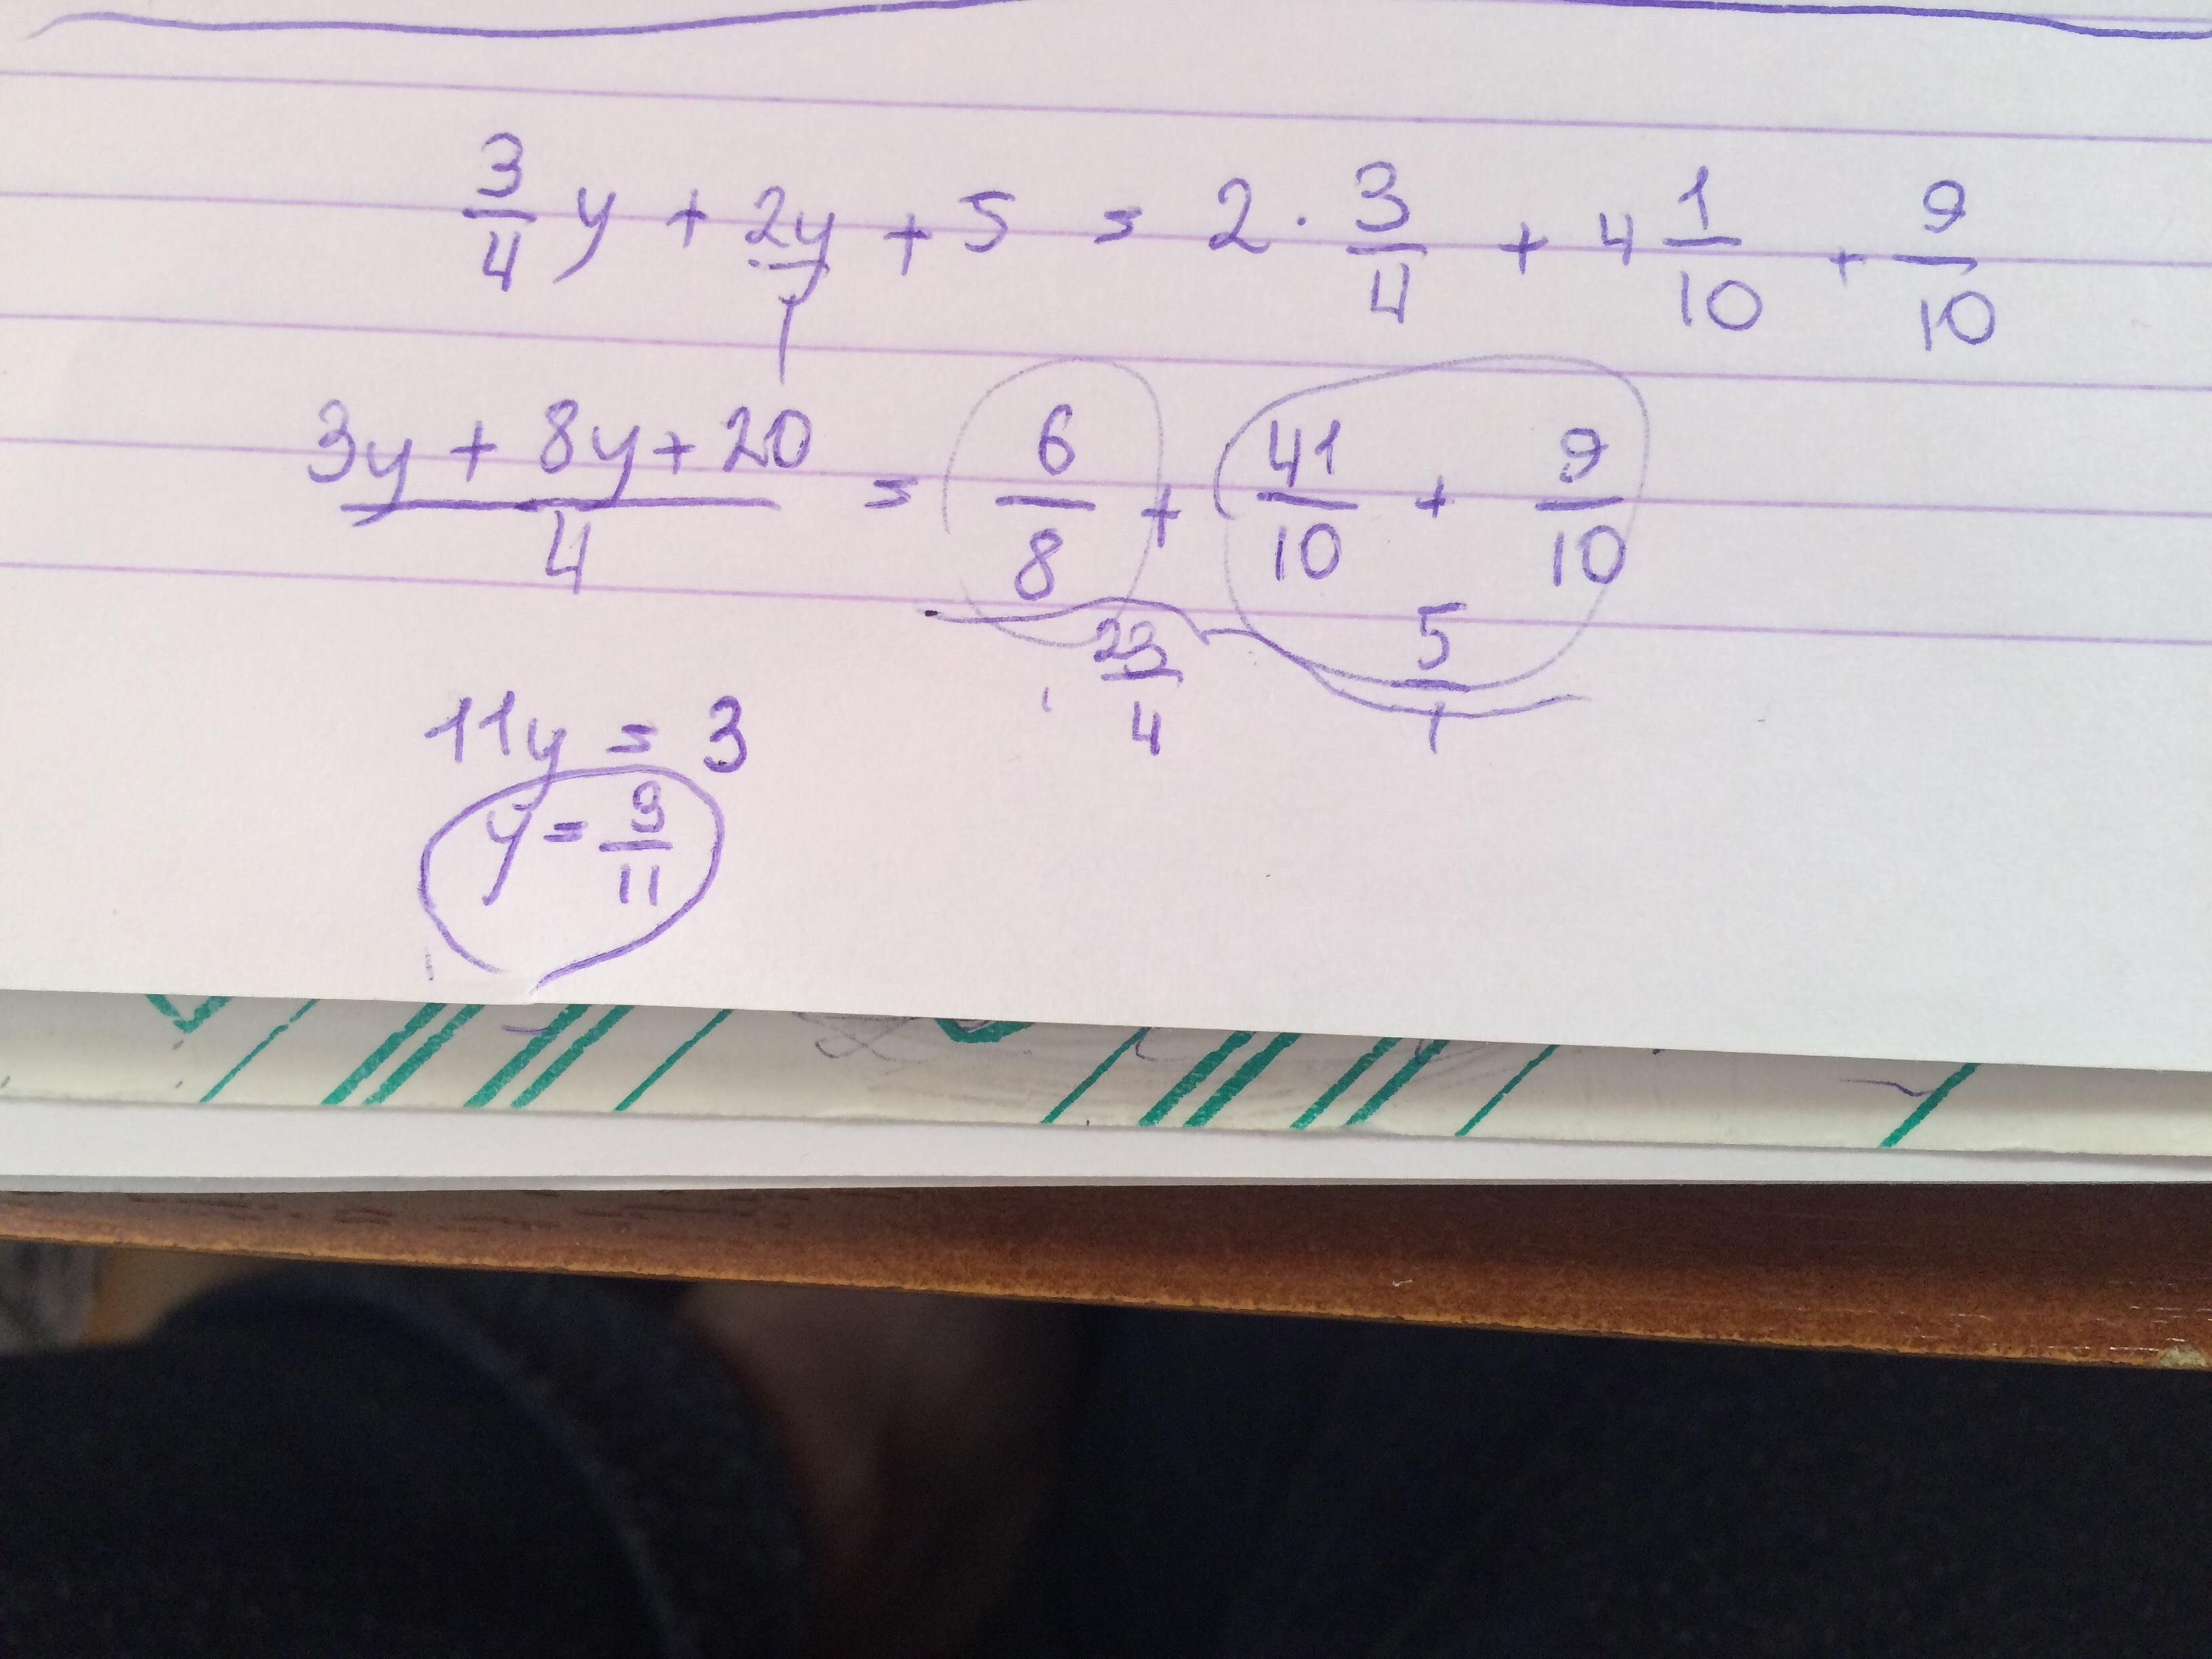 3/4 y + 2y/1 + 5 = 2 · 3/4 + 4 1/10 + 9/10
(3y + 8y + 20)/4 = 6/8 + 41/10 + 9/10
23/4 5/1
11y = 3
y = 3/11